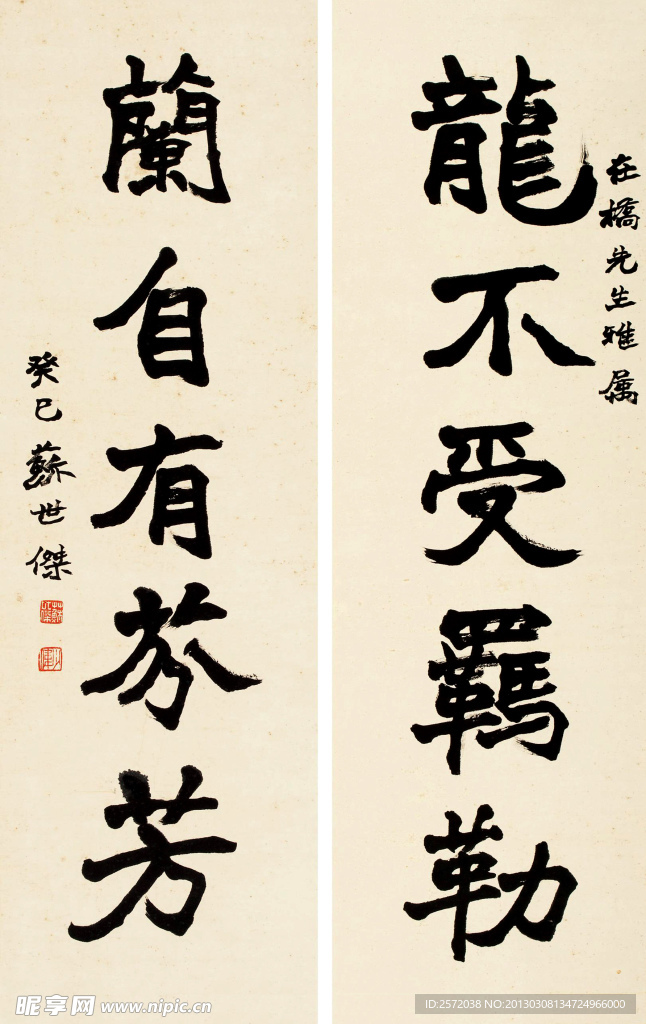 在橋先生雅属
龍不受羈勒
蘭自有芬芳
癸巳蘇世傑
昵享网 www.nipic.cn
ID:2572038 NO:20130308134724966000